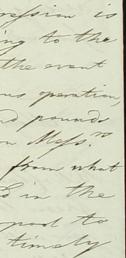 ression is
ing to the
the event
us operation,
nd pounds
n Messrs
from what
d in the
pool to
timely